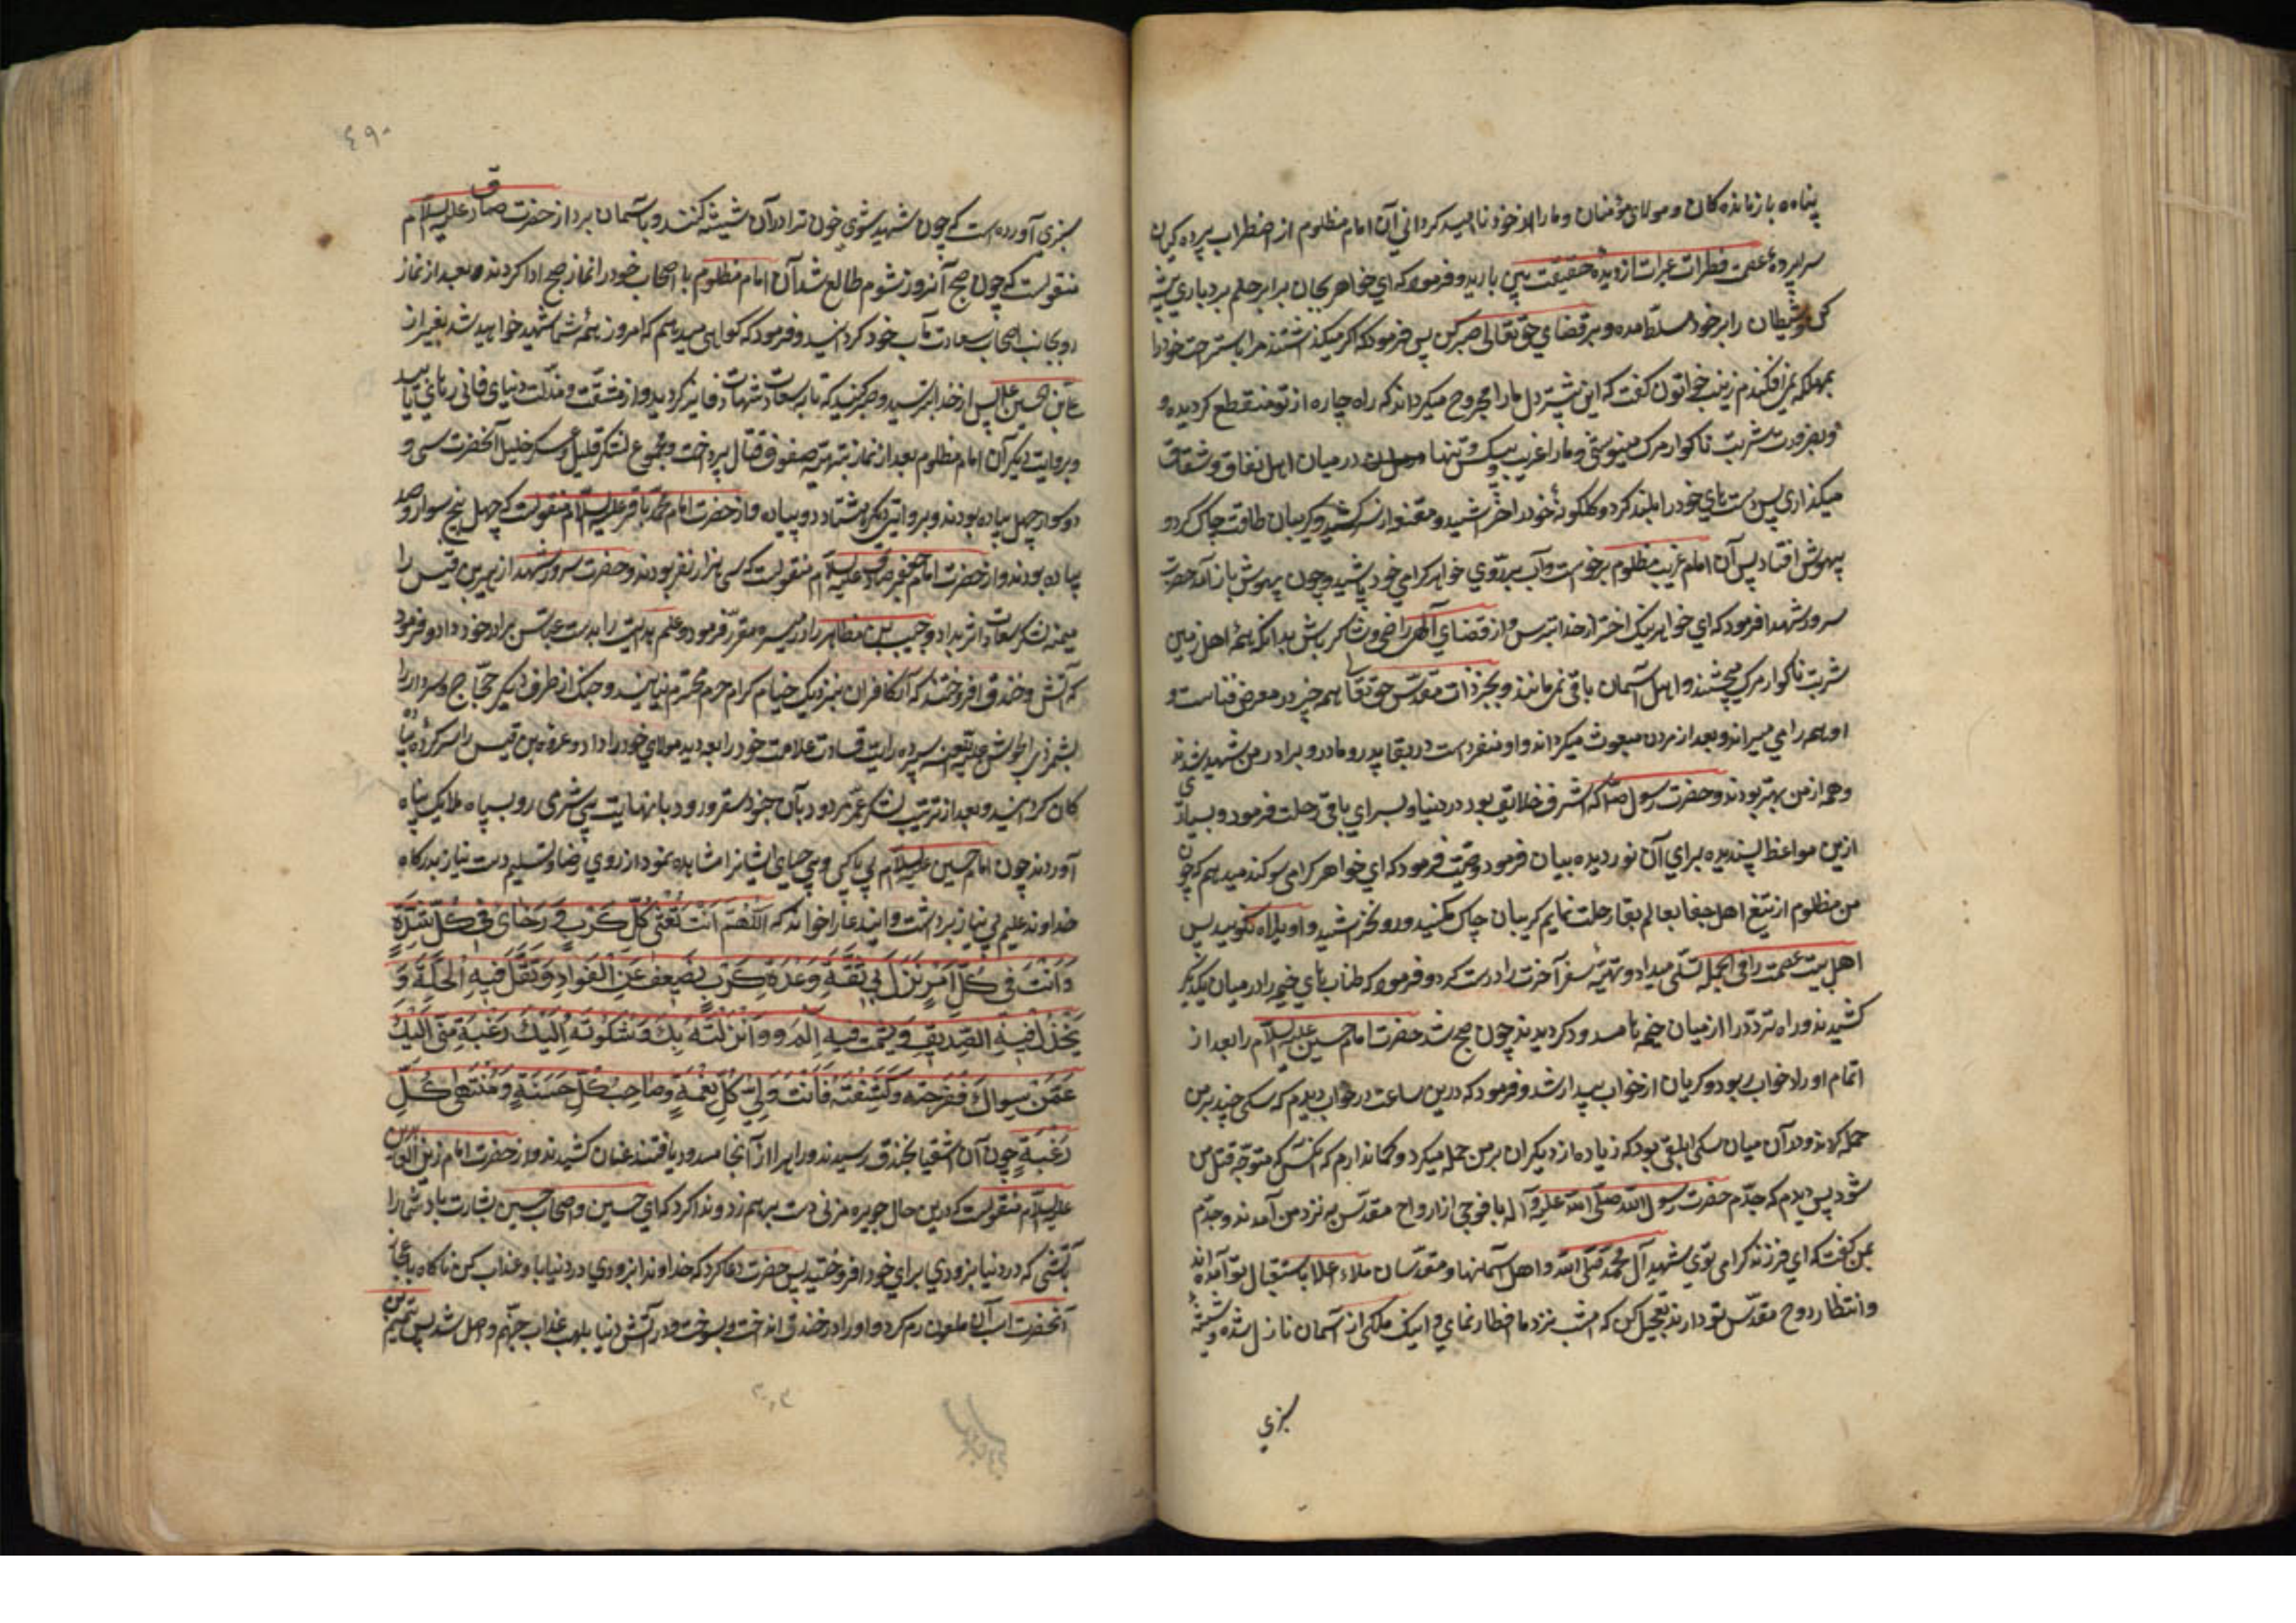 پناه بازمانده کان و مولای مؤمنان و ما را از خود ناامید کردانی آن امام مظلوم از اضطراب پرده کیان
سراپردهٔ عفت قطرات عبرات از دیدهٔ حقیقت بین بارید و فرمود که ای خواهر بجان برابر حلم و بردباری پیشه
کن و شیطان را بر خود مسلط مده و بر قضای حق تعالی صبر کن پس فرمود که اکر میکذاشتند مرا باستراحت خود را
بمهلکه نمی افکندم زینب خاتون کفت که این بیشتر دل ما را مجروح میکرداند که راه چاره از تو منقطع کردیده و
و بضرورت شربت ناکوار مرک مینوشی و ما را غریب و بیکس و تنها در میان اهل نفاق و شقاق
میکذاری پس دست های خود را بلند کرد و کلکونهٔ خود را خراشید و مقنعه از سر کشید و کریبان طاقت چاک کرد و
بیهوش افتاد پس آن امام غریب مظلوم برخواست و آب بر روی خواهر کرامی خود پاشید و چون بهوش باز آمد حضرت
سرور شهدا فرمود که ای خواهر نیک اختر از خدا بترس و از قضای الهی راضی و شاکر باش بدانکه همهٔ اهل زمین
شربت ناکوار مرک میچشند و اهل آسمان باقی نمیمانند و بجز ذات مقدس حق تعالی همه چیز در معرض فناست و
او همه را می میراند و بعد از مردن مبعوث میکرداند و او منفرد است در بقا پدر و مادر و برادر من شهید شدند
و همه از من بهتر بودند و حضرت رسول ص که اشرف خلایق بود در دنیا و بسرای باقی رحلت فرمود و بسیاری
ازین مواعظ پسندیده برای آن نور دیده بیان فرمود و وصیت فرمود که ای خواهر کرامی سوکند میدهم که چون
من مظلوم از تیغ اهل جفا بعالم بقا رحلت نمایم کریبان چاک مکنید و رو مخراشید و واویلاه مکویید پس
اهل بیت عصمت را فی الجمله تسلی میداد و تهیهٔ سفر آخرت را درست کرد و فرمود که طناب های خیمه را در میان یکدیکر
کشیدند و راه تردد را از میان خیمه ها مسدود کردیدند چون صبح شد حضرت امام حسین علیه السلام را بعد از
اتمام اوراد خواب ربود و کریان از خواب بیدار شد و فرمود که درین ساعت در خواب دیدم که سکی چند بر من
حمله کردند و در آن میان سکی ابلقی بود که زیاده از دیکران بر من حمله میکرد و کمان دارم که آنکس که متوجه قتل من
شود پس دیدم که جدم حضرت رسول الله صلی الله علیه و آله با فوجی از ارواح مقدس به نزد من آمدند و جدم
بمن کفت که ای فرزند کرامی توی شهید آل محمد صلی الله و اهل آسمانها و مقدسان ملاء اعلا باستقبال تو آمده اند
و انتظار روح مقدس تو دارند تعجیل کن که امشب نزد ما افطار نمای و اینک ملکی از آسمان نازل شده و شیشهٔ
سبزی
٤٩٠
سبزی آورده است که چون شهید شوی خون ترا در آن شیشه کنند و بآسمان برد از حضرت صادق علیه السلام
منقولست که چون صبح آنروز شوم طالع شد آن امام مظلوم با اصحاب خود را نماز صبح ادا کردند و بعد از نماز
رو بجانب اصحاب سعادت مآب خود کردانید و فرمود که کواهی میدهم که امروز همهٔ شما شهید خواهید شد بغیر از
علی بن الحسین علیه پس از خدا بترسید و صبر کنید که تا بسعادت شهادت فایز کردید و از مشقت و مذلت دنیای فانی رهای یابید
و بروایت دیکر آن امام مظلوم بعد از نماز بتهیهٔ صفوف قتال پرداخت و مجموع لشکر قلیل و عسکر خلیل آنحضرت سی و
دو سوار چهل پیاده بودند و بروایتی دیکر هشتاد دو پیاده و از حضرت امام محمد باقر علیه السلام منقولست که چهل پنج سوار و صد
پیاده بودند و از حضرت امام جعفر صادق علیه السلام منقولست که سی هزار نفر بودند و حضرت سرور شهدا زهیر بن قیس را
میمنه لشکر سعادت اثر بداد و حبیب بن مظاهر را در میسره مقرر فرمود و علم هدایت را بدست عباس برادر خود داد و فرمود
که آتش در خندق افروختند که آن کافران بنزدیک خیام کرام حرم محترم نیایند و جنک از طرف دیکر حجاج و سردار را
بشمر ذی الجوشن سپرده رایت قیادت علامت خود را بعد دید مولای خود را داد و عروه بن قیس را سرکردهٔ پیاده
کان کردانید و بعد از ترتیب لشکر عمر مردود بآن جنود سقر ورود با نهایت بی شرمی رو بسپاه ملایک پناه
آوردند چون امام حسین علیه السلام بی باکی و بی حیای ایشانرا مشاهده نمود از روی رضا و تسلیم دست نیاز بدرکاه
خداوند علیم بی نیاز برداشت و این دعا را خواند که اَللّٰهُمَّ اَنْتَ ثِقَتی کُلِّ کَرْبٍ وَ رَجَائی فِی کُلِّ شِدَّةٍ
وَ اَنْتَ فی کُلِّ اَمْرٍ نَزَلَ بی ثِقَةٍ وَ عُدَةٍ کَرْبٍ یَضْعِفُ عَنِ الْفَوَادِ وَ تَقَلَّ فیهِ الْحِلَةُ وَ
یَخْذُلُ فیهِ الصَّدیقُ وَ یَشْمَتُ فیهِ الْعَدُو وَ اَنْزَلْتَهُ بِکَ وَ شَکَوْتُهُ اِلَیْکَ رَغْبَةً مِنّی اِلَیْکَ
عَمَّنْ سِوَاکَ فَفَرَجْتَهُ وَ کَشَفْتَهُ فَاَنْتَ وَلِیُ کُلِّ نِعْمَةٍ وَ صَاحِبُ کُلِّ حَسَنَةٍ وَ مُنْتَهیٰ کُلِّ
رَغْبَةٍ چون آن اشقیا بخندق رسیدند و راه را از آنجا مسدود یافتند عنان کشیدند و از حضرت امام زین العابدین
علیه السلام منقولست که درین حال جویره مزنی دست بر هم زد و ندا کرد که ای حسین و اصحاب حسین بشارت باد شما را
بآتشی که در دنیا بزودی برای خود افروختید پس حضرت دعا کرد که خداوندا بزودی در دنیا باو عذاب کن ناکاه باعجاز
آنحضرت اسب آن ملعون رم کرد و او را در خندق انداخت و بسوخت و در آتش دنیا بلهب عذاب جهنم واصل شد پس تمیم بن